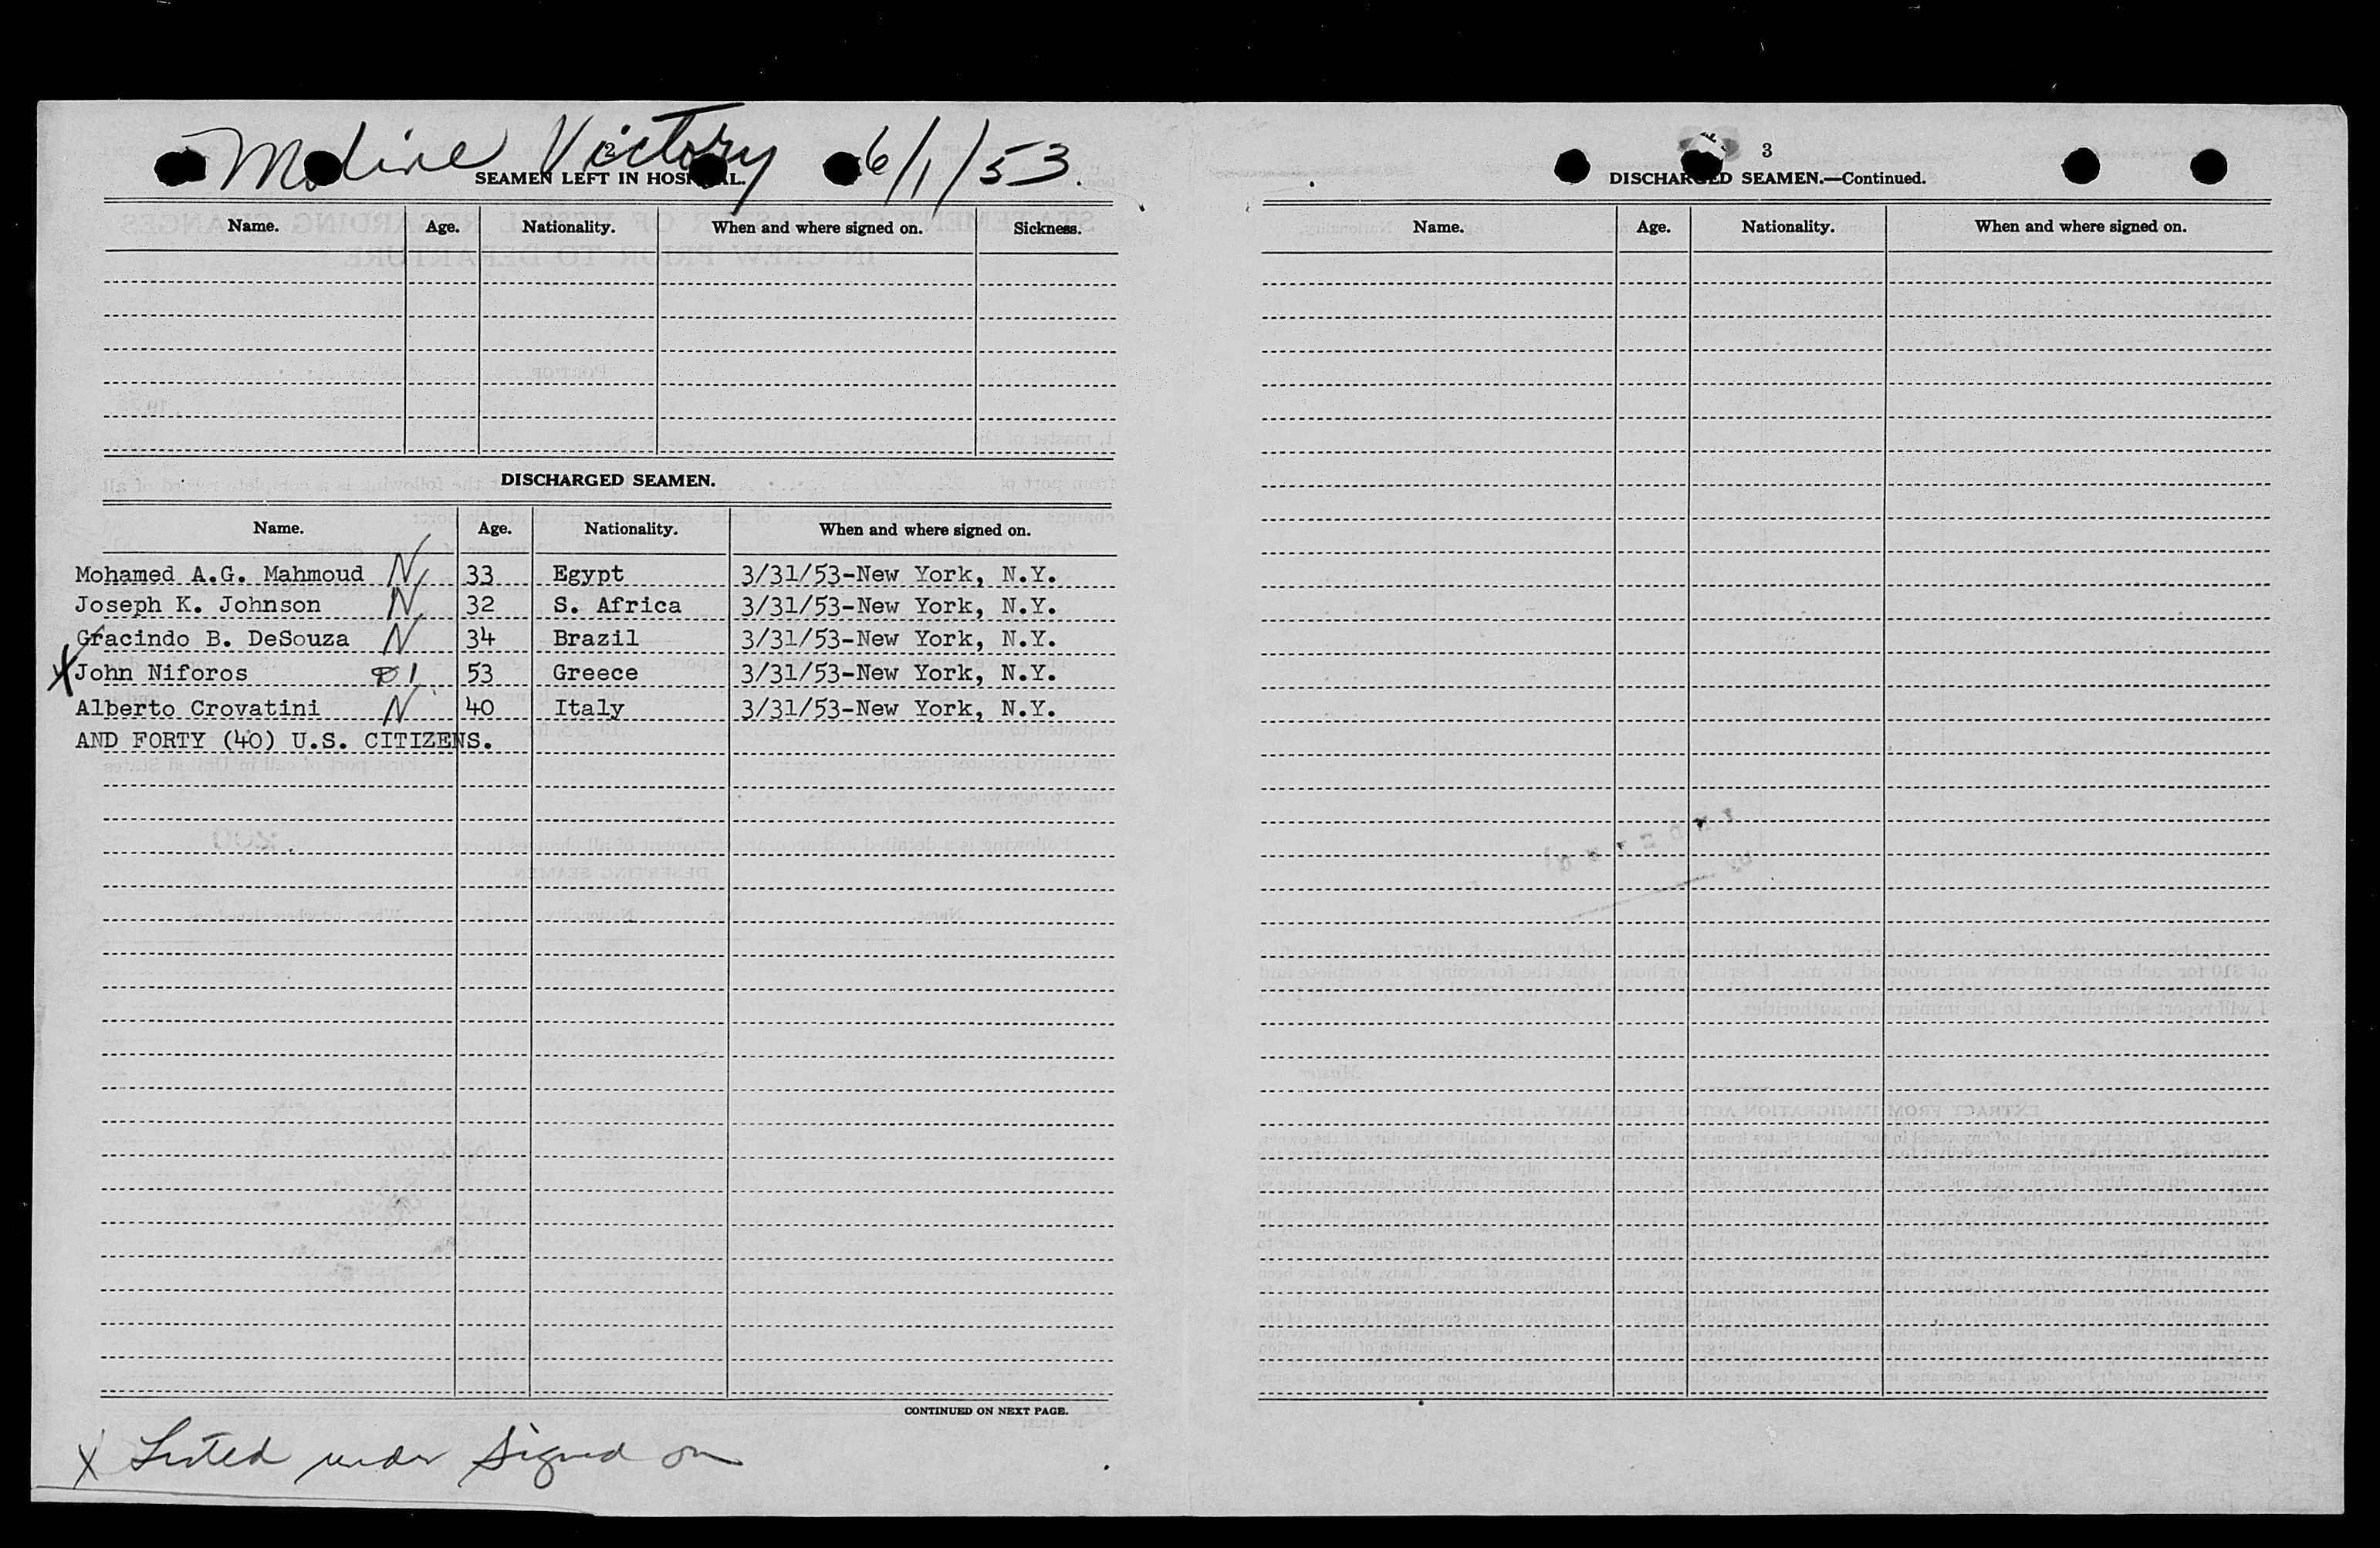 Moline Victory 6/1/53.
2
SEAMEN LEFT IN HOSPITAL.
Name. Age. Nationality. When and where signed on. Sickness.
DISCHARGED SEAMEN.
Name. Age. Nationality. When and where signed on.
Mohamed A.G. Mahmoud N 33 Egypt 3/31/53-New York, N.Y.
Joseph K. Johnson N 32 S. Africa 3/31/53-New York, N.Y.
Gracindo B. DeSouza N 34 Brazil 3/31/53-New York, N.Y.
X John Niforos 53 Greece 3/31/53-New York, N.Y.
Alberto Crovatini N 40 Italy 3/31/53-New York, N.Y.
AND FORTY (40) U.S. CITIZENS.
CONTINUED ON NEXT PAGE.
X Listed under signed on
3
DISCHARGED SEAMEN.—Continued.
Name. Age. Nationality. When and where signed on.